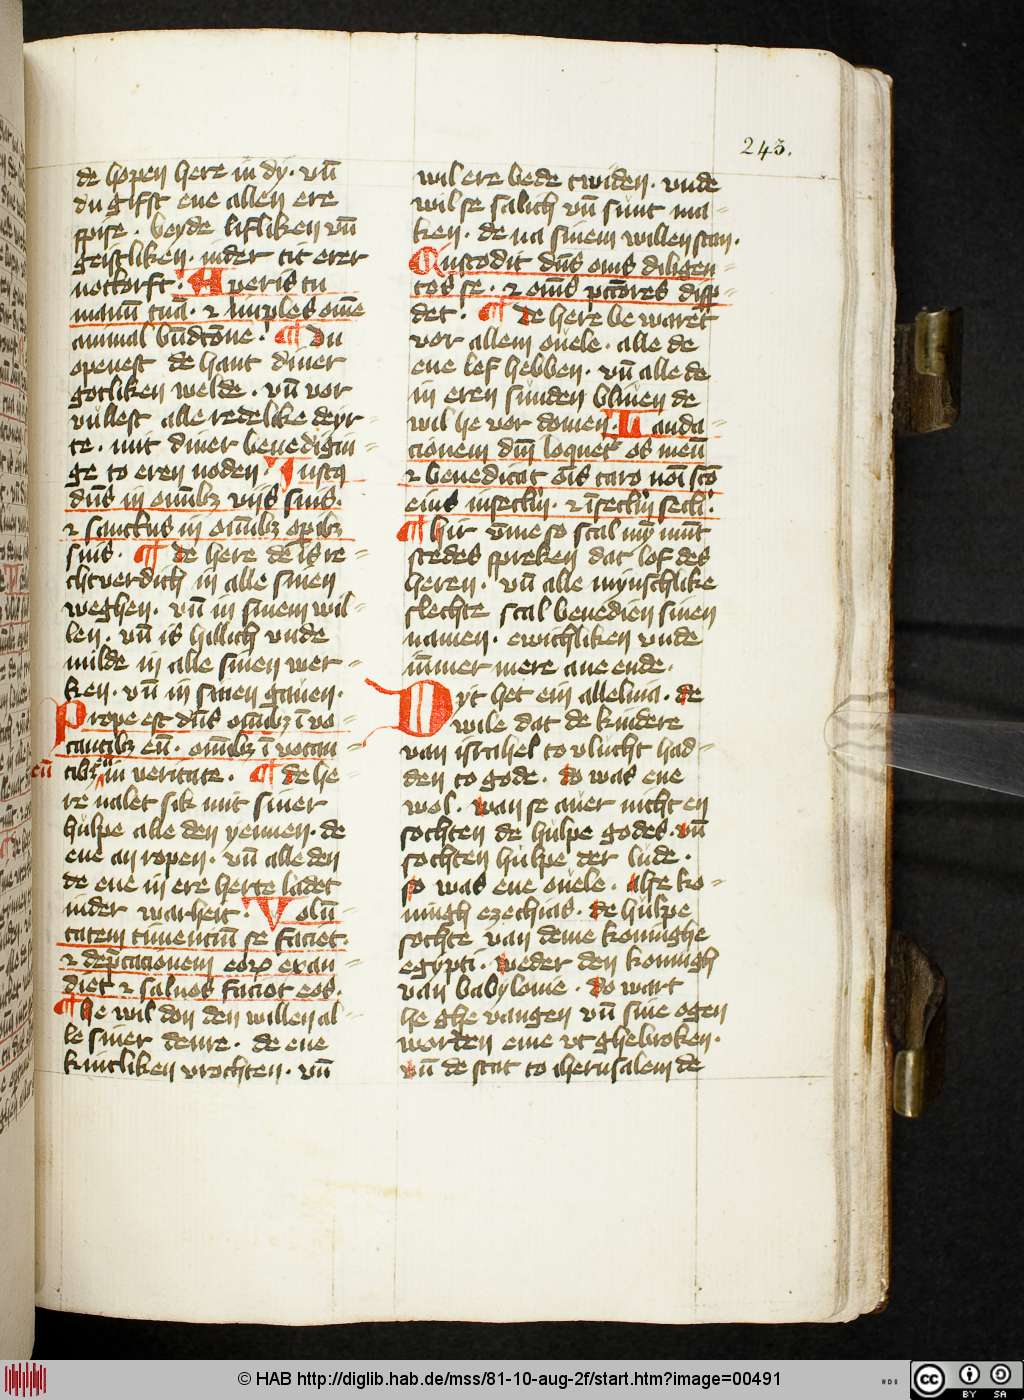 243.
de hopen here in dy · vn̄
du gifst ene allen ere
spise · beyde lifliken vn̄
geistliken · inder tit erer
nottorft · Aperis tu
manū tuā · ⁊ imples om̄e
animal bn̄dicōne · ¶ Du
openest de hant diner
gotliken welde · vn̄ vor
vullest alle redelike deyr-
te · mit diner benedigin-
ge to eren noden · Iustꝰ
dn̄s in omībꝫ viis suis ·
⁊ sanctus in omībꝫ opibꝫ
suis · ¶ de here de is re-
chtverdich in alle sinen
weghen · vn̄ in sinem wil-
len · vn̄ is hillich vnde
milde in alle sinen wer-
ken · vn̄ in sinen gauen ·
Prope est dn̄s omībꝫ ī vo-
cantibꝫ eū · omībꝫ ī vocan-
tibꝫ eū in veritate · ¶ de he-
re nalet sik mit siner
hulpe alle den yennen · de
ene an ropen · vn̄ alle den
de ene in ere herte ladet
inder warheit · Volū-
tatem timenciū se faciet ·
⁊ dep̄cacionem eoꝝ exau-
diet ⁊ saluos faciet eos ·
¶ he wil don den willen al-
le siner denre · de ene
kintliken vrochten · vn̄
wil ere bede twiden · vnde
wil se salich vn̄ sunt ma-
ken · de na sinem willen stan ·
Custodit dn̄s om̄s diligen-
tes se · ⁊ om̄s pctōres disp̄-
det · ¶ de here be waret
vor allem ouele · alle de
ene lef hebben · vn̄ alle de
in eren sunden bliuen de
wil he vor domen · Lauda-
cionem dn̄i loquet os meū
⁊ benedicat om̄s caro noī scō
eius in seclm̄ · ⁊ ī seclm̄ secli ·
¶ hir vm̄e so scal my munt
stedes spreken dat lof des
heren · vn̄ alle mynschlike
slechte scal benedien sinen
namen · ewichliken vnde
ūmer mere ane ende ·
Dyt het ein alleluia · de
wile dat de kindere
van israhel to vlucht had-
den to gode · do was ene
wol · wan se auer nichten
sochten de hulpe godes · vn̄
sochten hulpe der lude ·
so was ene ouele · alse ko-
ningh ezechias · de hulpe
sochte van deme koninghe
egypti · weder den koningh
van babylonie · do wart
he ghe vangen vn̄ sine ogen
worden eme vt ghebroken ·
vn̄ de stat to iherusalem de
© HAB http://diglib.hab.de/mss/81-10-aug-2f/start.htm?image=00491
cc BY SA